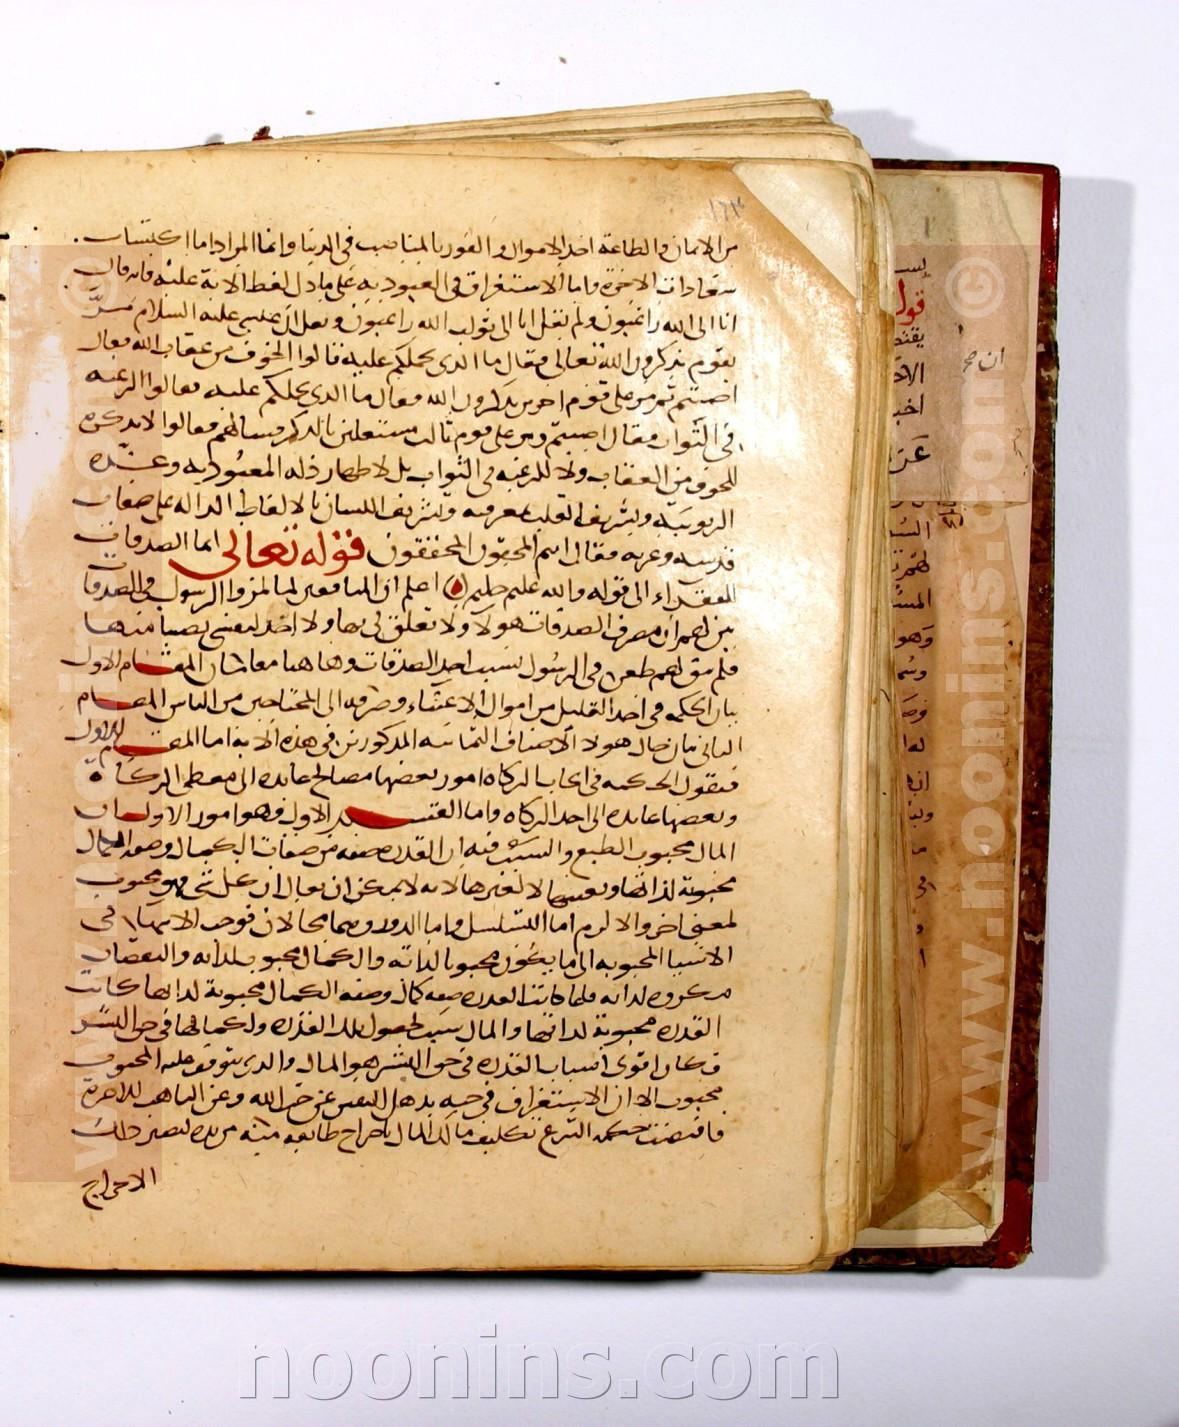 ١٦٣
من الايمان والطاعة اخذ الاموال والفوز بالمناصب فى الدنيا وانما المراد اما اكتساب
سعادات الاخرة واما الاستغراق فى العبودية على ما دل لفظ الاية عليه فانه قال
انا الى الله راغبون ولم يقل انا الى ثواب الله راغبون ونقل ان عيسى عليه السلام مر
بقوم يذكرون الله تعالى فقال ما الذى يحملكم عليه قالوا الخوف من عقاب الله فقال
اصبتم ثم مر على قوم اخرين يذكرون الله فقال ما الذى يحملكم عليه فقالوا الرغبه
فى الثواب فقال اصبتم ومر على قوم ثالث مشتغلين بالذكر فسالهم فقالوا لا نذكره
للخوف من العقاب ولا للرغبه فى الثواب بل لاظهار ذله العبوديه وعزه
الربوبيه وتشريف القلب بمعرفته وتشريف اللسان بالالفاظ الداله على صفات
قدسه وعزه فقال انتم المحقون المحققون قوله تعالى انما الصدقات
للفقراء الى قوله والله عليم حكيم اعلم ان المنافقين لما لمزوا الرسول فى الصدقات
بين لهم ان مصرف الصدقات هولا ولا تعلق لى بها ولا اخذ لنفسى نصيبا منها
فلم يبق لهم طعن فى الرسول بسبب اخذ الصدقات وهاهنا مقامان المقام الاول
بيان الحكمه فى اخذ القليل من اموال الاغنياء وصرفه الى المحتاجين من الناس المقام
الثانى بيان حال هولا الاصناف الثمانيه المذكورين فى هذه الايه اما المقام الاول
فنقول الحكمه فى ايجاب الزكاه امور بعضها مصالح عايده الى معطى الزكاة
وبعضها عايده الى اخذ الزكاه واما القسم الاول فهو امور الاول ان
المال محبوب الطبع والسبب فيه ان القدره صفه من صفات الكمال وصفه الكمال
محبوبة لذاتها ولا لغيرها لانه لا يمكن ان يقال ان كل شى فهو محبوب
لمعنى اخر والا لزم اما التسلسل واما الدور وهما محالان فوجب الانتهاء فى
الاشيا المحبوبه الى ما يكون محبوبا لذاته والكمال محبوب لذاته والنقصان
مكروه لذاته فلما كانت القدره صفه كمال وصفه الكمال محبوبة لذاتها كانت
القدره محبوبة لذاتها والمال سبب لحصول تلك القدره ولكمالها فى حق البشر
فكان اقوى اسباب القدره فى حق البشر هو المال والذى يتوقف عليه المحبوب
محبوب الا ان الاستغراق فى حبه يذهل النفس عن حب الله وعن التاهب للاخرة
فاقتضت حكمه الشرع تكليف مالك المال باخراج طايفه منه من يده ليصير ذلك
الاخراج
قول
ان صح
© www.noonins.com
noonins.com